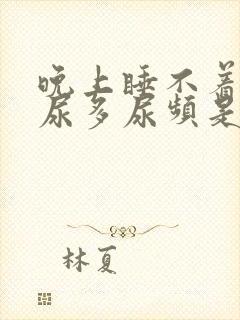 晚上睡不着
尿多尿频是
林夏